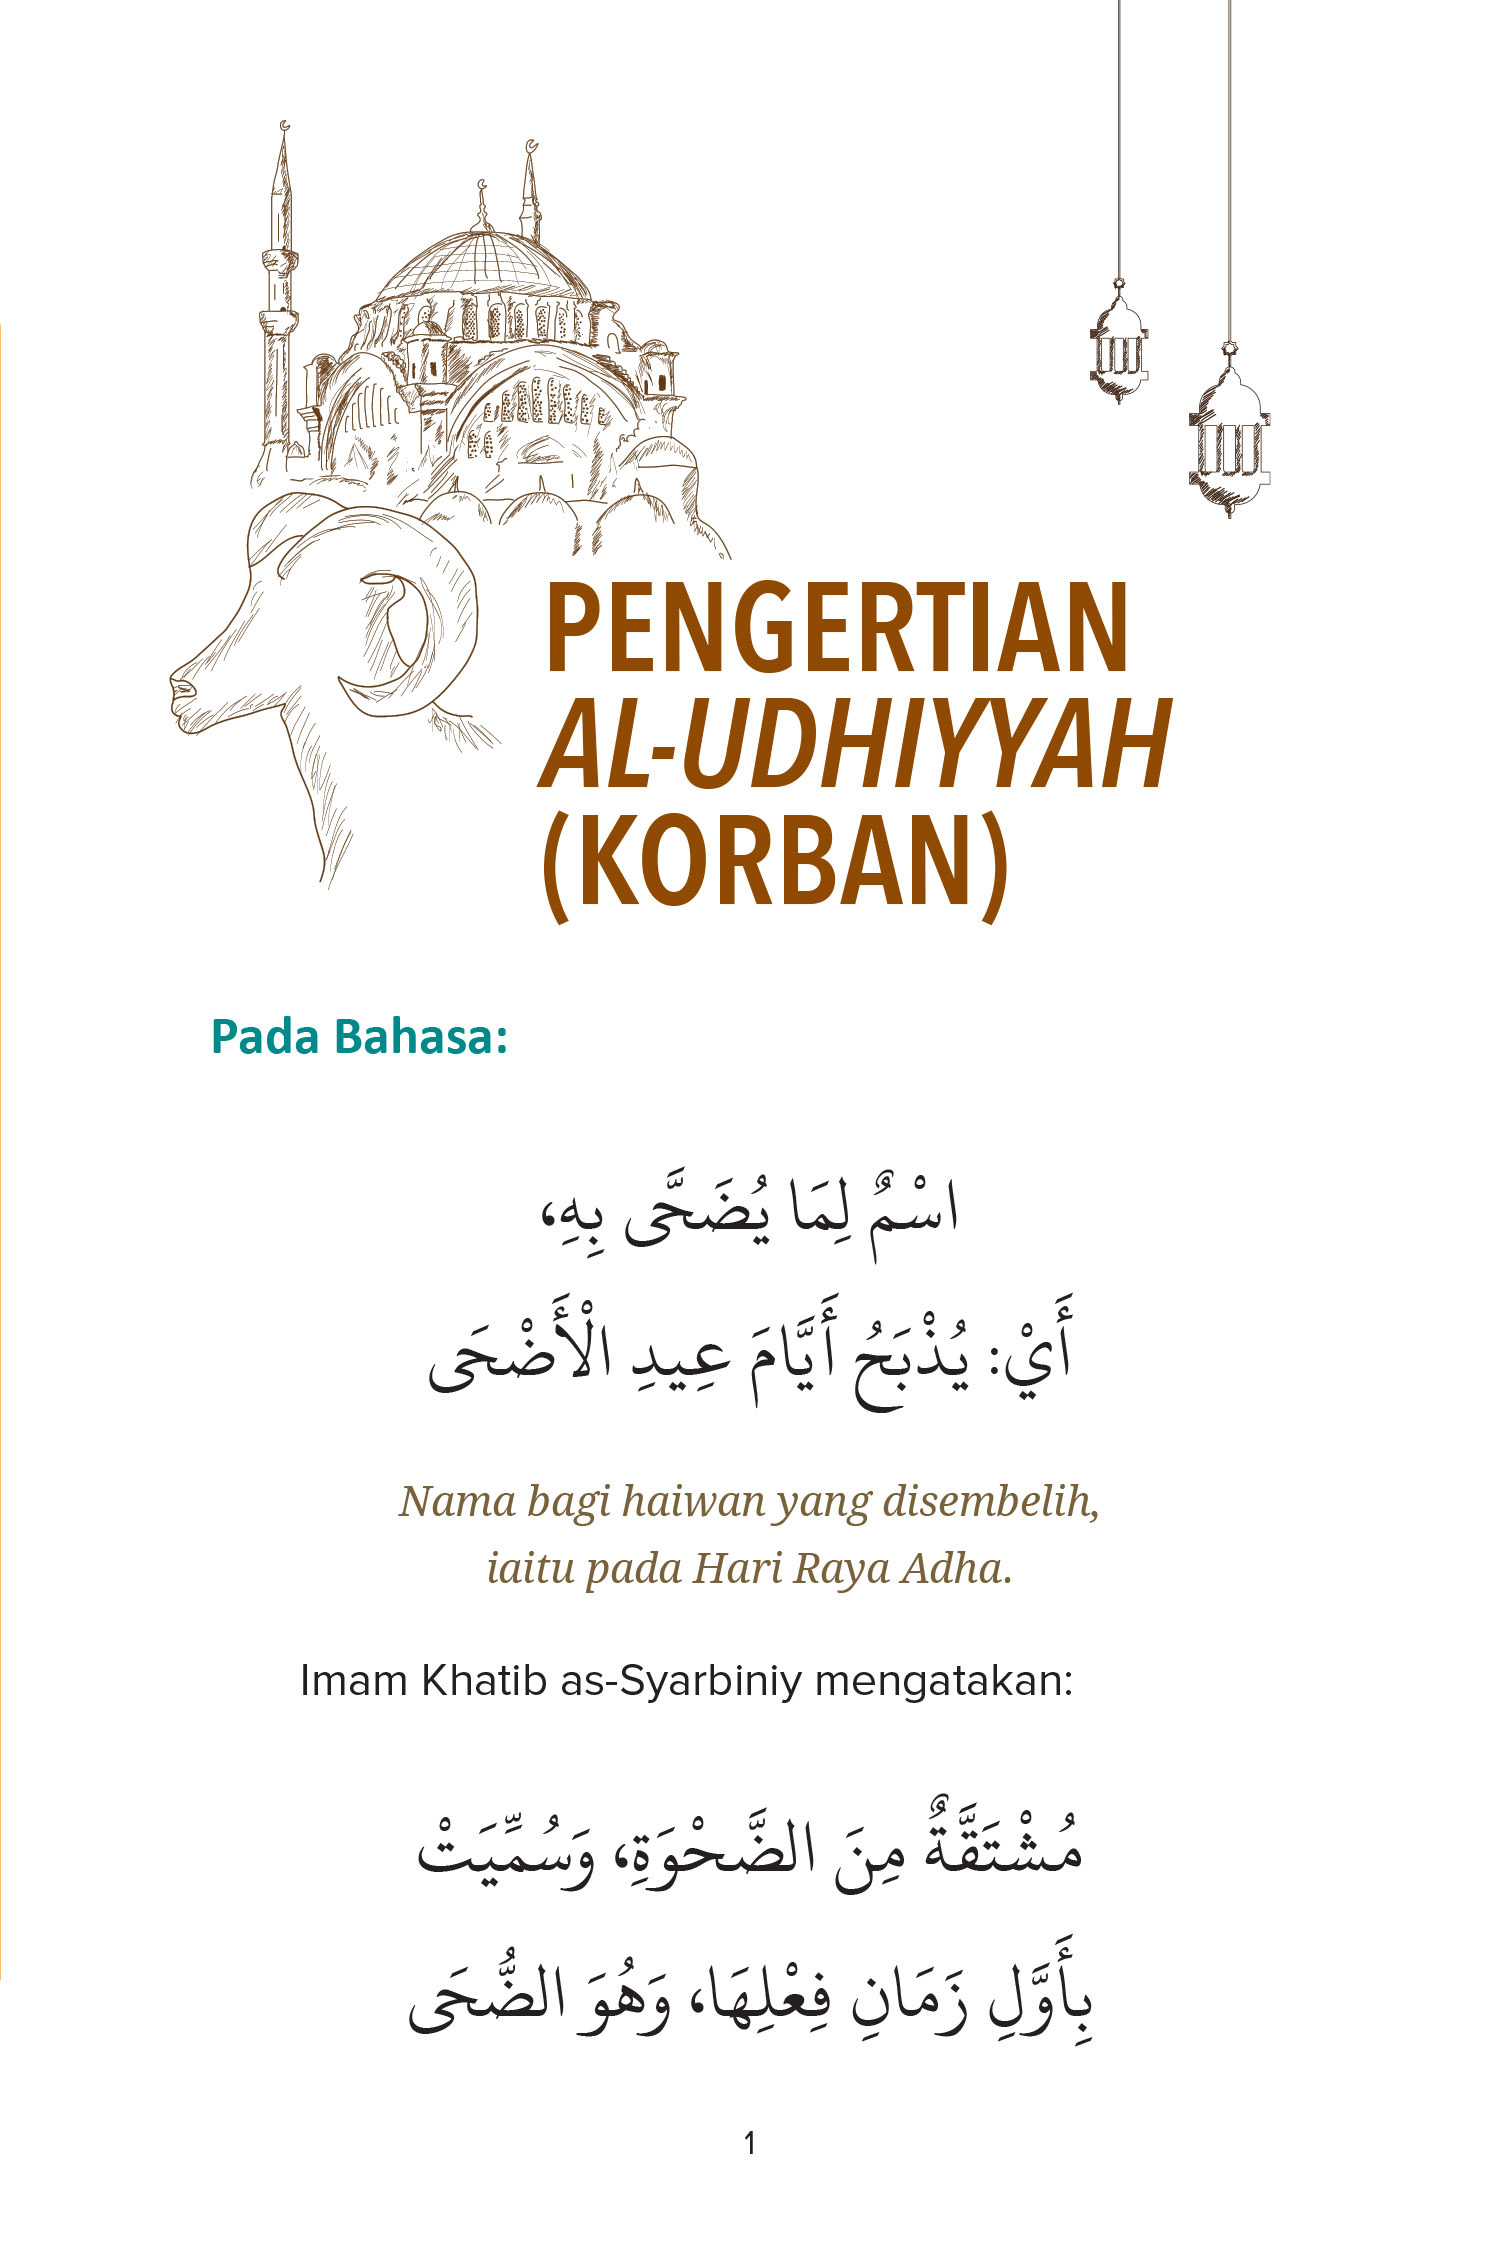 PENGERTIAN
AL-UDHIYYAH
(KORBAN)
Pada Bahasa:
اسْمٌ لِمَا يُضَحَّى بِهِ،
أَيْ: يُذْبَحُ أَيَّامَ عِيدِ الْأَضْحَى
Nama bagi haiwan yang disembelih,
iaitu pada Hari Raya Adha.
Imam Khatib as-Syarbiniy mengatakan:
مُشْتَقَّةٌ مِنَ الضَّحْوَةِ، وَسُمِّيَتْ
بِأَوَّلِ زَمَانِ فِعْلِهَا، وَهُوَ الضُّحَى
1